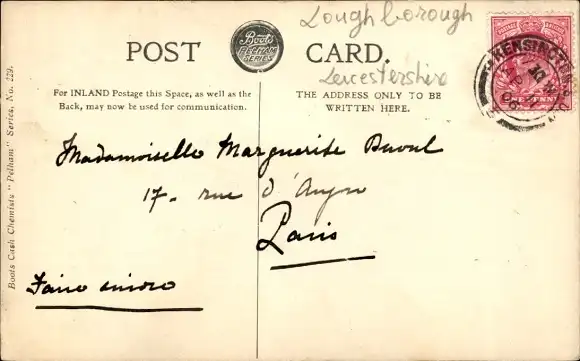 Loughborough
POST CARD.
Boots
PELHAM
SERIES
Leicestershire
KENSINGTON
PENNY
For INLAND Postage this Space, as well as the
Back, may now be used for communication.
THE ADDRESS ONLY TO BE
WRITTEN HERE.
Madamoiselle Marguerite Raoul
17- rue d'Anjou
Paris
Faire suivre
Boots Cash Chemists "Pelham" Series, No. 229.